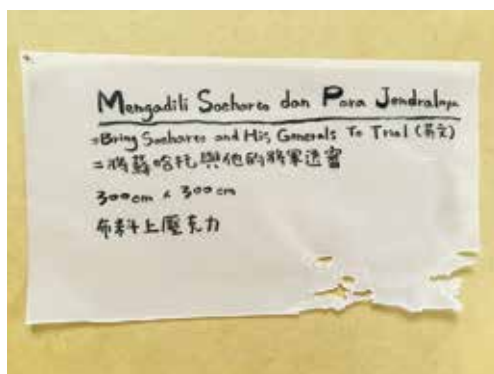 Mengadili Soeharto dan Para Jendralnya
=Bring Soeharto and His Generals To Trial (英文)
=將蘇哈托與他的將軍送審
300cm x 300cm
布料上壓克力